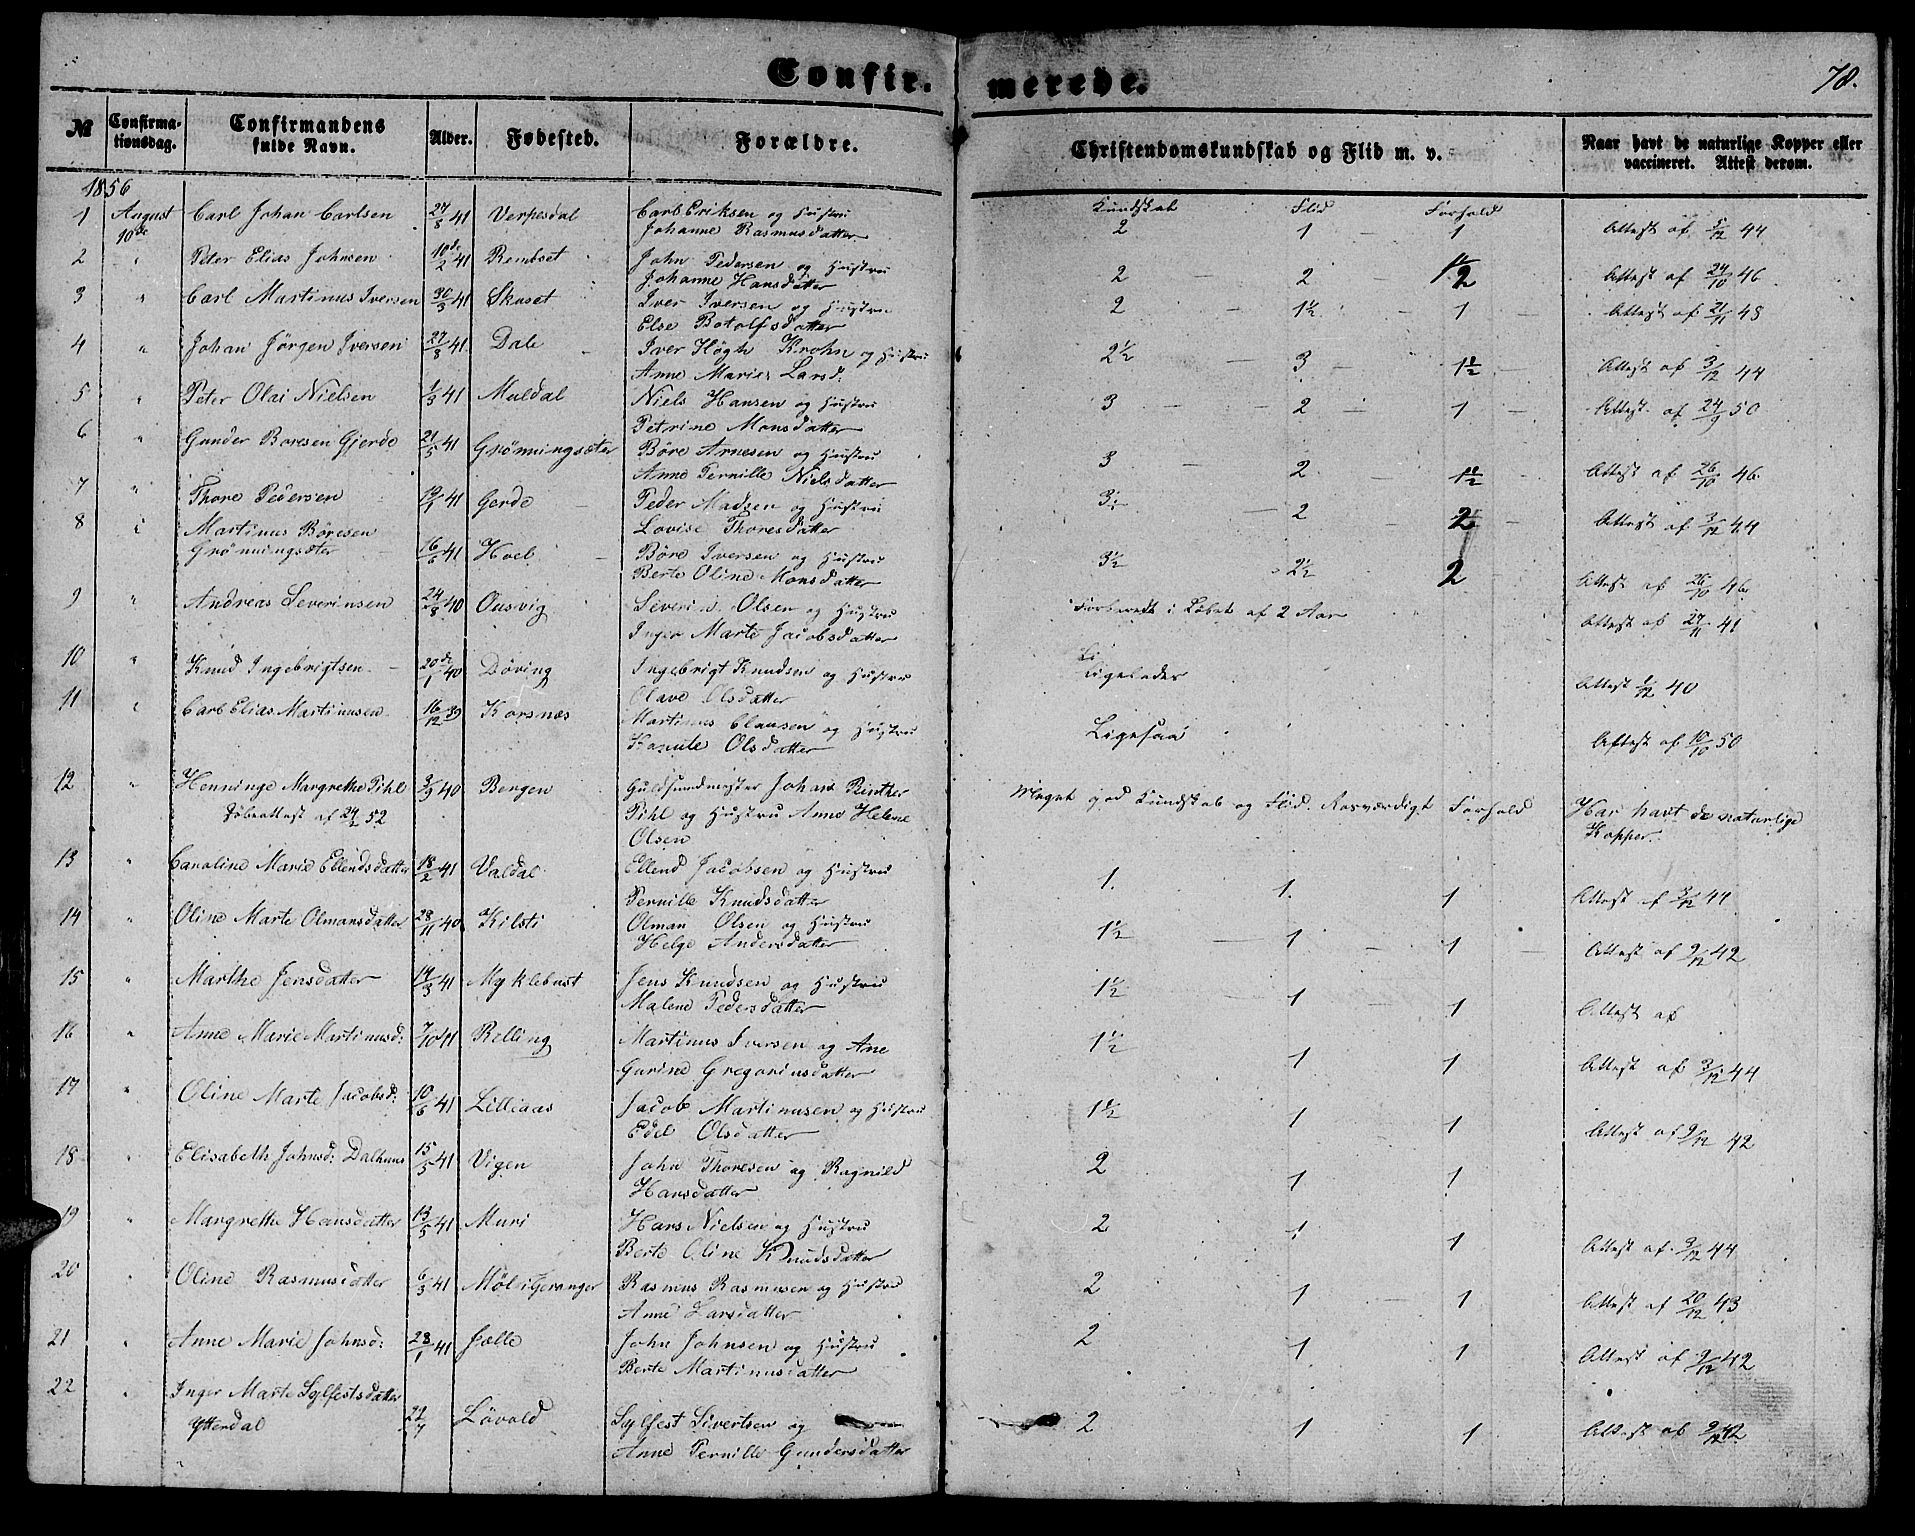 Confir.
merede.
78.
№
Confirma-
tionsdag.
Confirmandens
fulde Navn.
Alder.
Fødested.
Forældre.
Christendomskundskab og Flid m. v.
Naar havt de naturlige Kopper eller
vaccineret. Attest derom.
1856
Kundskab Flid Forhold
1 August 10de Carl Johan Carlsen 27/8 41 Verpesdal Carl Eriksen og Hustru
Johanne Rasmusdatter 2 1 1 Attest af 5/12 44
2 " Peter Elias Johnsen 10de/2 41 Rembset John Pedersen og Hustru
Johanne Hansdatter 2 2 Attest af 24/10 46
3 " Carl Martinus Iversen 30/3 41 Skuset Iver Iversen og Hustru
Else Botolfsdatter 2 1½ 1 Attest af 21/11 48
4 " Johan Jørgen Iversen 27/8 41 Dale Iver Høgh Krohn og Hustru
Anne Marie Larsd. 2½ 3 1½ Attest af 3/12 44
5 " Peter Olai Nielsen 1/3 41 Muldal Niels Hansen og Hustru
Petrine Monsdatter 3 2 1 Attest af 24/9 50
6 " Gunder Boresen Gjerde 21/5 41 Grønningsæter Børe Arnesen og Hustru
Anne Pernille Nielsdatter 3 2 1½ Attest af 26/10 46
7 " Thore Pedersen 41 Gerde Peder Madsen og Hustru
Lovise Thoresdatter 2 2 Attest af 3/12 44
8 " Martinus Børesen
Grønningsæter 16/6 41 Hoel Børe Iversen og Hustru
Berte Oline Monsdatter 3½ 2½ 2 Attest af 26/10 46
9 " Andreas Severinsen 24/8 40 Ousvig Severin Olsen og Hustru
Inger Marte Jacobsdatter Forberedt i Løbet af 2 Aar Attest af 27/11 41
10 " Knud Ingebrigtsen 20de/1 40 Døving Ingebrigt Knudsen og Hustru
Olave Olsdatter Ligeledes Attest 1/12 40
11 " Carl Elias Martinusen 16/12 39 Korsnæs Martinus Clausen og Hustru
Kanute Olsdatter Ligesaa Attest af 10/10 50
12 " Henninge Margrethe Pihl 3/9 40 Bergen Guldsmedmester Johan Rinther
Døbeattest af 24/2 52 Pihl og Hustru Anne Helene
Olsen Meget god Kundskab og Flid. Rosværdigt Forhold Har havt de naturlige
Kopper.
13 " Caroline Marie Ellendsdatter 18/2 41 Valdal Ellend Jacobsen og Hustru
Pernille Knudsdatter 1. 1. 1 Attest af 3/12 44
14 " Oline Marte Olmansdatter 28/11 40 Kilsti Olman Olsen og Hustru
Helge Andersdatter 1½ 1 1 Attest af 9/12 42
15 " Marthe Jensdatter 14/3 41 Myklebust Jens Knudsen og Hustru
Malene Pedersdatter 1½ 1 1 Attest af
16 " Anne Marie Martinusd: 7/10 41 Relling Martinus Iversen og Ane
Gurine Gregoriusdatter 1½ 1 1 Attest af 3/12 44
17 " Oline Marte Jacobsd: 10/6 41 Lilliaas Jacob Martinusen og Hustru
Edel Olsdatter 1½ 1 1 Attest af 9/12 42
18 " Elisabeth Johnsd: Dalhuus 15/5 41 Vigen John Thoresen og Ragnild
Hansdatter 2 1 1
19 " Margrethe Hansdatter 13/5 41 Muri Hans Nielsen og Hustru
Berte Oline Knudsdatter 2 1 1 Attest af 3/12 44
20 " Oline Rasmusdatter 6/3 41 Møl i Geranger Rasmus Rasmusen og Hustru
Anne Larsdatter 2 1 1 Attest af 20/12 43
21 " Anne Marie Johnsd: 28/1 41 Hælle John Johnsen og Hustru
Berte Martinusdatter 2 1 1 Attest af 9/12 42
22 " Inger Marte Sylfestsdatter
Ytterdal 22/7 Løvold Sylfest Sivertsen og
Anne Pernille Gundersdatter 2 1 1 Attest af 9/12 42